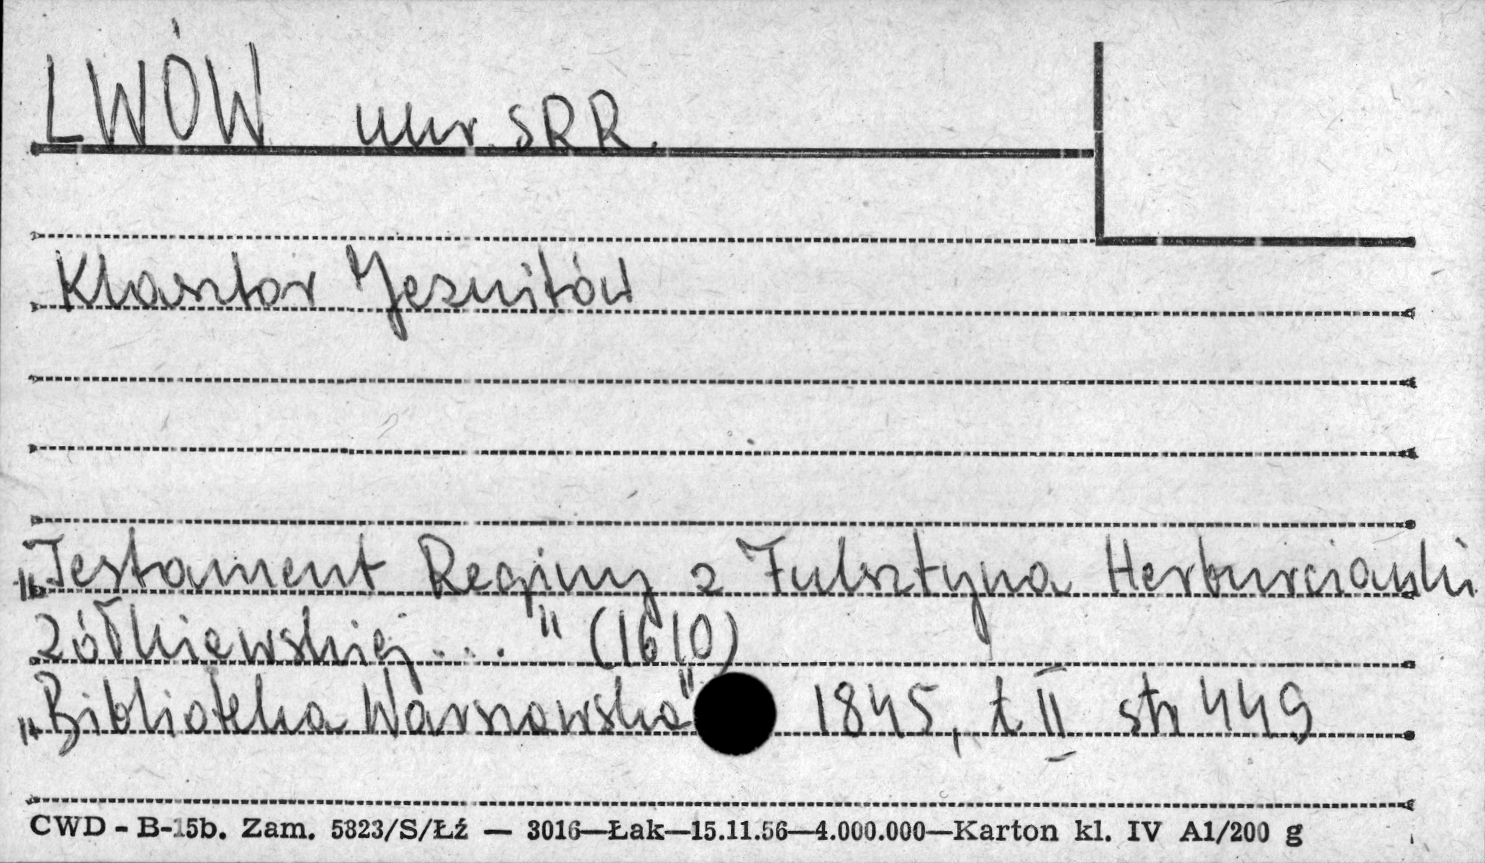 LWÓW ukr. SRR.
Klasztor Jezuitów
„Testament Reginy z Fulsztyna Herburcianki
Żółkiewskiej..." (1610)
„Biblioteka Warszawska" 1845, t II str 449
CWD - B-15b. Zam. 5823/S/Łź — 3016—Łak—15.11.56—4.000.000—Karton kl. IV A1/200 g